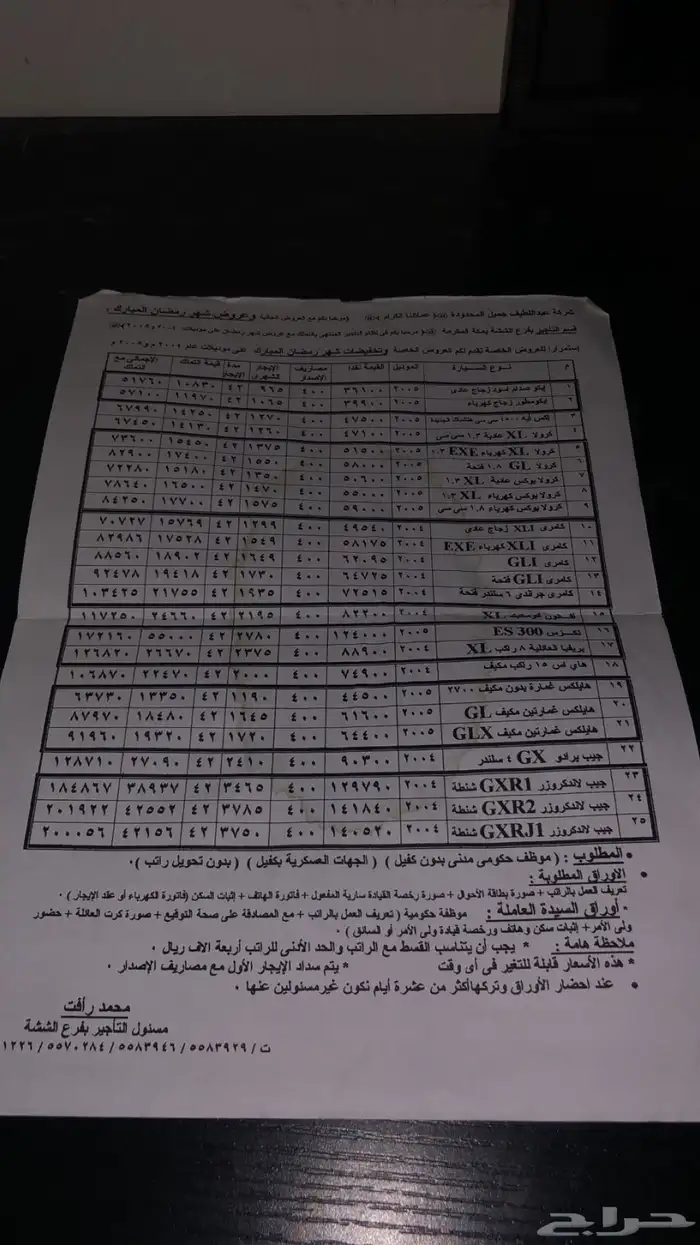 شركة عبداللطيف جميل المحدودة عملائنا الكرام وعروض شهر رمضان المبارك
قسم التأجير بفرع الششة بمكة المكرمة
إستمرار للعروض الخاصة نقدم لكم العروض الخاصة وتخفيضات شهر رمضان المبارك على موديلات عام ٢٠٠٤ م و ٢٠٠٥ م
م نوع السيارة الموديل القيمة نقدا مصاريف الاصدار الإيجار الشهري مدة الايجار قيمة التملك الإجمالي مع التملك
١ إيكو صدام اسود زجاج عادي ٢٠٠٥ ٣٦١٠٠ ٤٠٠ ٩٦٥ ٤٢ ١٠٨٣٠ ٥١٧٦٠
٢ ايكو صطور زجاج كهرباء ٢٠٠٥ ٣٩٩٠٠ ٤٠٠ ١٠٦٥ ٤٢ ١١٩٧٠ ٥٧١٠٠
٣ ١٥٠٠ سي سي ٢٠٠٥ ٤٧٥٠٠ ٤٠٠ ١٢٧٠ ٤٢ ١٤٢٥٠ ٦٧٩٩٠
٤ كرولا XL عادية ١.٣ سي سي ٢٠٠٥ ٤٧١٠٠ ٤٠٠ ١٢٦٠ ٤٢ ١٤١٣٠ ٦٧٤٥٠
٥ كرولا XL كهرباء EXE ١.٣ ٢٠٠٥ ٥١٥٠٠ ٤٠٠ ١٣٧٥ ٤٢ ١٥٤٥٠ ٧٣٦٠٠
٦ كرولا GL ١.٨ فتحة ٢٠٠٥ ٥٨٠٠٠ ٤٠٠ ١٥٥٠ ٤٢ ١٧٤٠٠ ٨٢٩٠٠
٧ كرولا بوكس عادية XL ١.٣ ٢٠٠٥ ٥٠٦٠٠ ٤٠٠ ١٣٥٠ ٤٢ ١٥١٨٠ ٧٢٢٨٠
٨ كرولا بوكس كهرباء XL ١.٣ ٢٠٠٥ ٥٥٠٠٠ ٤٠٠ ١٤٧٠ ٤٢ ١٦٥٠٠ ٧٨٦٤٠
٩ كرولا بوكس كهرباء ١.٨ سي سي ٢٠٠٥ ٥٩٠٠٠ ٤٠٠ ١٥٧٥ ٤٢ ١٧٧٠٠ ٨٤٢٥٠
١٠ كامري XLI زجاج عادي ٢٠٠٤ ٤٩٥٤٠ ٤٠٠ ١٢٩٩ ٤٢ ١٥٧٦٩ ٧٠٧٢٧
١١ كامري XLI كهرباء EXE ٢٠٠٤ ٥٨١٧٥ ٤٠٠ ١٥٤٩ ٤٢ ١٧٥٢٨ ٨٢٩٨٦
١٢ كامري GLI ٢٠٠٤ ٦٢٠٩٥ ٤٠٠ ١٦٤٩ ٤٢ ١٨٩٠٢ ٨٨٥٦٠
١٣ كامري GLI فتحة ٢٠٠٤ ٦٤٧٢٥ ٤٠٠ ١٧٣٠ ٤٢ ١٩٤١٨ ٩٢٤٧٨
١٤ كامري جراندي ٦ سلندر فتحة ٢٠٠٤ ٧٢٥١٥ ٤٠٠ ١٩٣٥ ٤٢ ٢١٧٥٥ ١٠٣٤٢٥
١٥ XL ٢٠٠٤ ٨٢٢٠٠ ٤٠٠ ٢١٩٥ ٤٢ ٢٤٦٦٠ ١١٧٢٥٠
١٦ لكزس ES 300 ٢٠٠٥ ١٢٤٠٠٠ ٤٠٠ ٢٧٨٠ ٤٢ ٥٥٠٠٠ ١٧٢١٦٠
١٧ بريفيا العائلية ٨ راكب XL ٢٠٠٥ ٨٨٩٠٠ ٤٠٠ ٢٣٧٥ ٤٢ ٢٦٦٧٠ ١٢٦٨٢٠
١٨ هاي اس ١٥ راكب مكيف ٢٠٠٤ ٧٤٩٠٠ ٤٠٠ ٢٠٠٠ ٤٢ ٢٢٤٧٠ ١٠٦٨٧٠
١٩ هايلكس غمارة بدون مكيف ٢٧٠٠ ٢٠٠٥ ٤٤٥٠٠ ٤٠٠ ١١٩٠ ٤٢ ١٣٣٥٠ ٦٣٧٣٠
٢٠ هايلكس غمارتين مكيف GL ٢٠٠٥ ٦١٦٠٠ ٤٠٠ ١٦٤٥ ٤٢ ١٨٤٨٠ ٨٧٩٧٠
٢١ هايلكس غمارتين مكيف GLX ٢٠٠٥ ٦٤٤٠٠ ٤٠٠ ١٧٢٠ ٤٢ ١٩٣٢٠ ٩١٩٦٠
٢٢ جيب برادو GX ٤ سلندر ٢٠٠٤ ٩٠٣٠٠ ٤٠٠ ٢٤١٠ ٤٢ ٢٧٠٩٠ ١٢٨٧١٠
٢٣ جيب لاندكروزر GXR1 شنطة ٢٠٠٤ ١٢٩٧٩٠ ٤٠٠ ٣٤٦٥ ٤٢ ٣٨٩٣٧ ١٨٤٨٦٧
٢٤ جيب لاندكروزر GXR2 شنطة ٢٠٠٤ ١٤١٨٤٠ ٤٠٠ ٣٧٨٥ ٤٢ ٤٢٥٥٢ ٢٠١٩٢٢
٢٥ جيب لاندكروزر GXRJ1 شنطة ٢٠٠٤ ١٤٠٥٢٠ ٤٠٠ ٣٧٥٠ ٤٢ ٤٢١٥٦ ٢٠٠٠٥٦
• المطلوب : ( موظف حكومي مدني بدون كفيل ) ( الجهات العسكرية بكفيل ) ( بدون تحويل راتب ) .
• الأوراق المطلوبة :
تعريف العمل بالراتب + صورة بطاقة الأحوال + صورة رخصة القيادة سارية المفعول + فاتورة الهاتف + إثبات السكن (فاتورة الكهرباء أو عقد الإيجار) .
• أوراق السيدة العاملة : موظفة حكومية ( تعريف العمل بالراتب + مع المصادقة على صحة التوقيع + صورة كرت العائلة + حضور
ولي الأمر + إثبات سكن وهاتف ورخصة قيادة ولي الأمر أو السائق ) .
ملاحظة هامة : * يجب أن يتناسب القسط مع الراتب والحد الأدنى للراتب أربعة الاف ريال .
* هذه الأسعار قابلة للتغير في أي وقت * يتم سداد الإيجار الأول مع مصاريف الإصدار .
• عند احضار الأوراق وتركها أكثر من عشرة أيام نكون غير مسئولين عنها .
محمد رأفت
مسئول التأجير بفرع الششة
ت / ٥٥٨٣٩٢٩ / ٥٥٨٣٩٤٦ / ٥٥٧٠٢٨٤ / ١٢٢٦
حراج